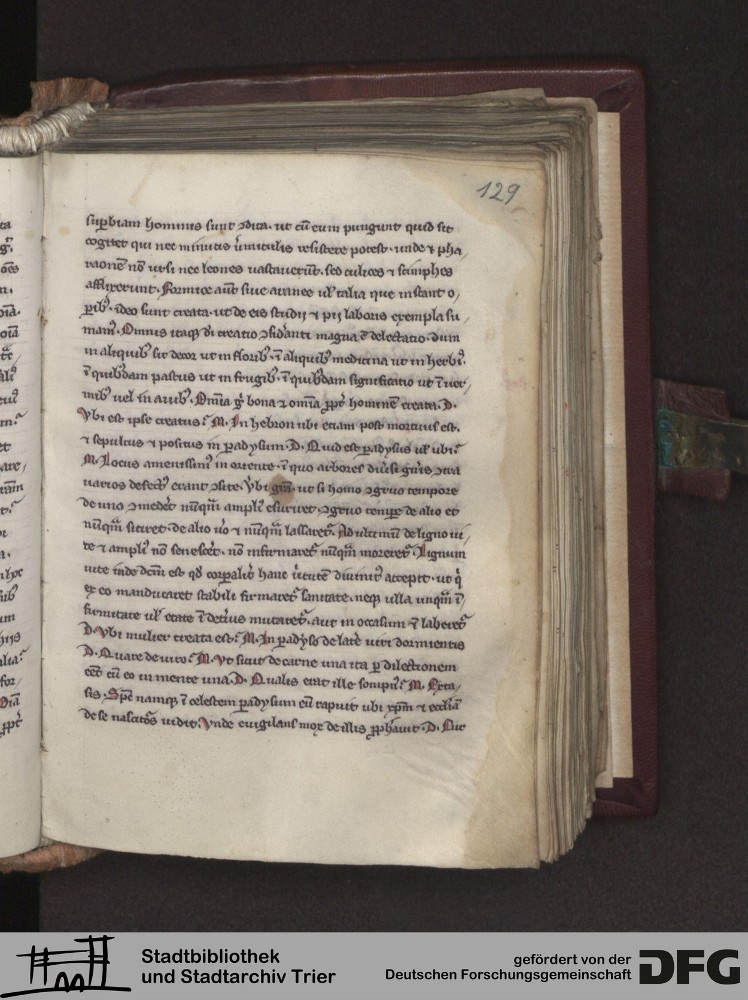 129
suꝑbiam hominis sunt ↄdita. ut cū eum pungunt quid sit
cogitet qui nec minutis ūmiculis resistere potest. unde ⁊ pha
raonē nō ursi nec leones uastauerūt. sed culices ⁊ sciniphes
afflixerunt. Formice aūt siue aranee ul' talia que instant o
ꝑib'. ideo sunt creata. ut de eis studii ⁊ pii laboris exempla su
mam'. Omnis itaq; di creatio ↄsid'anti magna ē delectatio. dum
in aliquib' sit decor ut in florib'. ī aliquib' medicina ut in herbis.
ī quib'dam pastus ut in frugib'. ī quib'dam significatio ut ī uer
mib' uel in auib'. Om̄ia g̊ bona ⁊ om̄ia ꝓpt' hominē creata. D.
Vbi est ipse creatus? M. In hebron ubi etiam post mortuus est.
⁊ sepultus ⁊ positus in ꝑadysum. D. Quid est ꝑadysus ul' ubi?
M. Locus amenissim' in oriente. ī quo arbores diūsi gn̄is ↄtra
uarios defect' erant ↄsite. Vbi gr̄a. ut si homo ↄgruo tempore
de uno ↄmederet nūqua̅ ampli' esuriret. ↄgruo tempe de alio et
nūqua̅ sitiret. de alio uo ⁊ nūqua̅ lassaret'. Ad ultimū de ligno ui
te ⁊ ampli' nō senesceret. nō infirmaret' nūqua̅ moreret'. Lignum
uite inde dcm̄ est qd̄ corporalit' hanc ūtutē diuinit' accepit. ut q̇
ex eo manducaret stabili firmaret' sanitate. neq; ulla unqua̅ ī
firmitate ul' etate ī deterius mutaret'. aut in occasum ⁊ laberet'
D. Vbi mulier creata est? M. In ꝑadyso de late' uiri dormientis
D. Quare de uiro? M. Vt sicut de carne una ita ꝑ dilectionem
eēt cū eo in mente una. D. Qualis erat ille sompn'? M. Exta
sis. Sps̄ namq; ī celestem ꝑadysum eū rapuit ubi xp̄m ⁊ eccl'iā
de se nascitōs uidit. Vnde euigilans mox de illis ꝓphauit. D. Cur
Stadtbibliothek
und Stadtarchiv Trier
gefördert von der
Deutschen Forschungsgemeinschaft
DFG